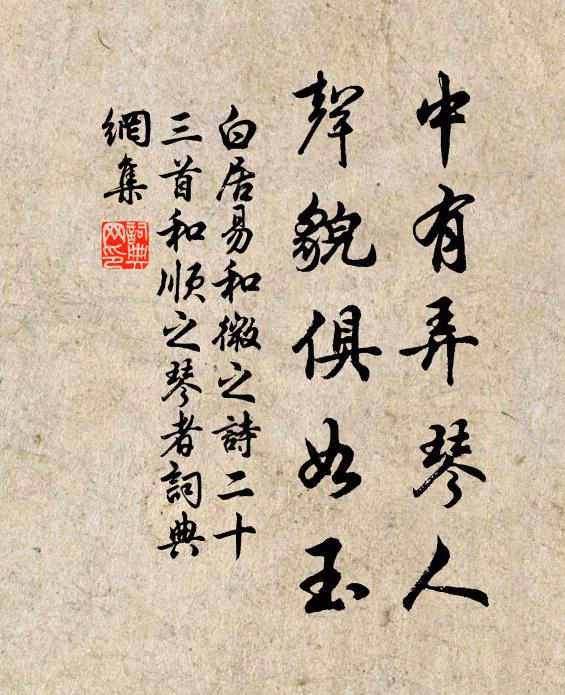 中有弄琴人
聲貌俱如玉
白居易和微之詩二十
三首和順之琴者詞典
網集
詞典
网印